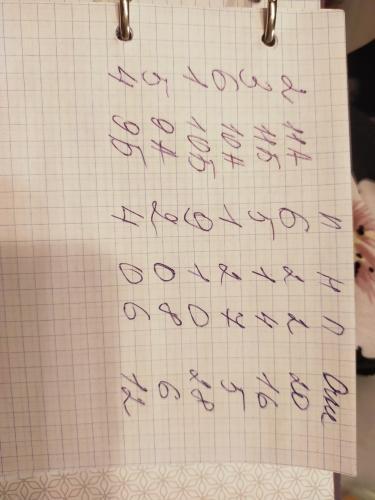 п н п Очк
2 117 6 2 2 20
3 115 5 1 4 16
6 107 1 2 7 5
1 105 9 1 0 28
5 97 2 0 8 6
4 95 4 0 6 12